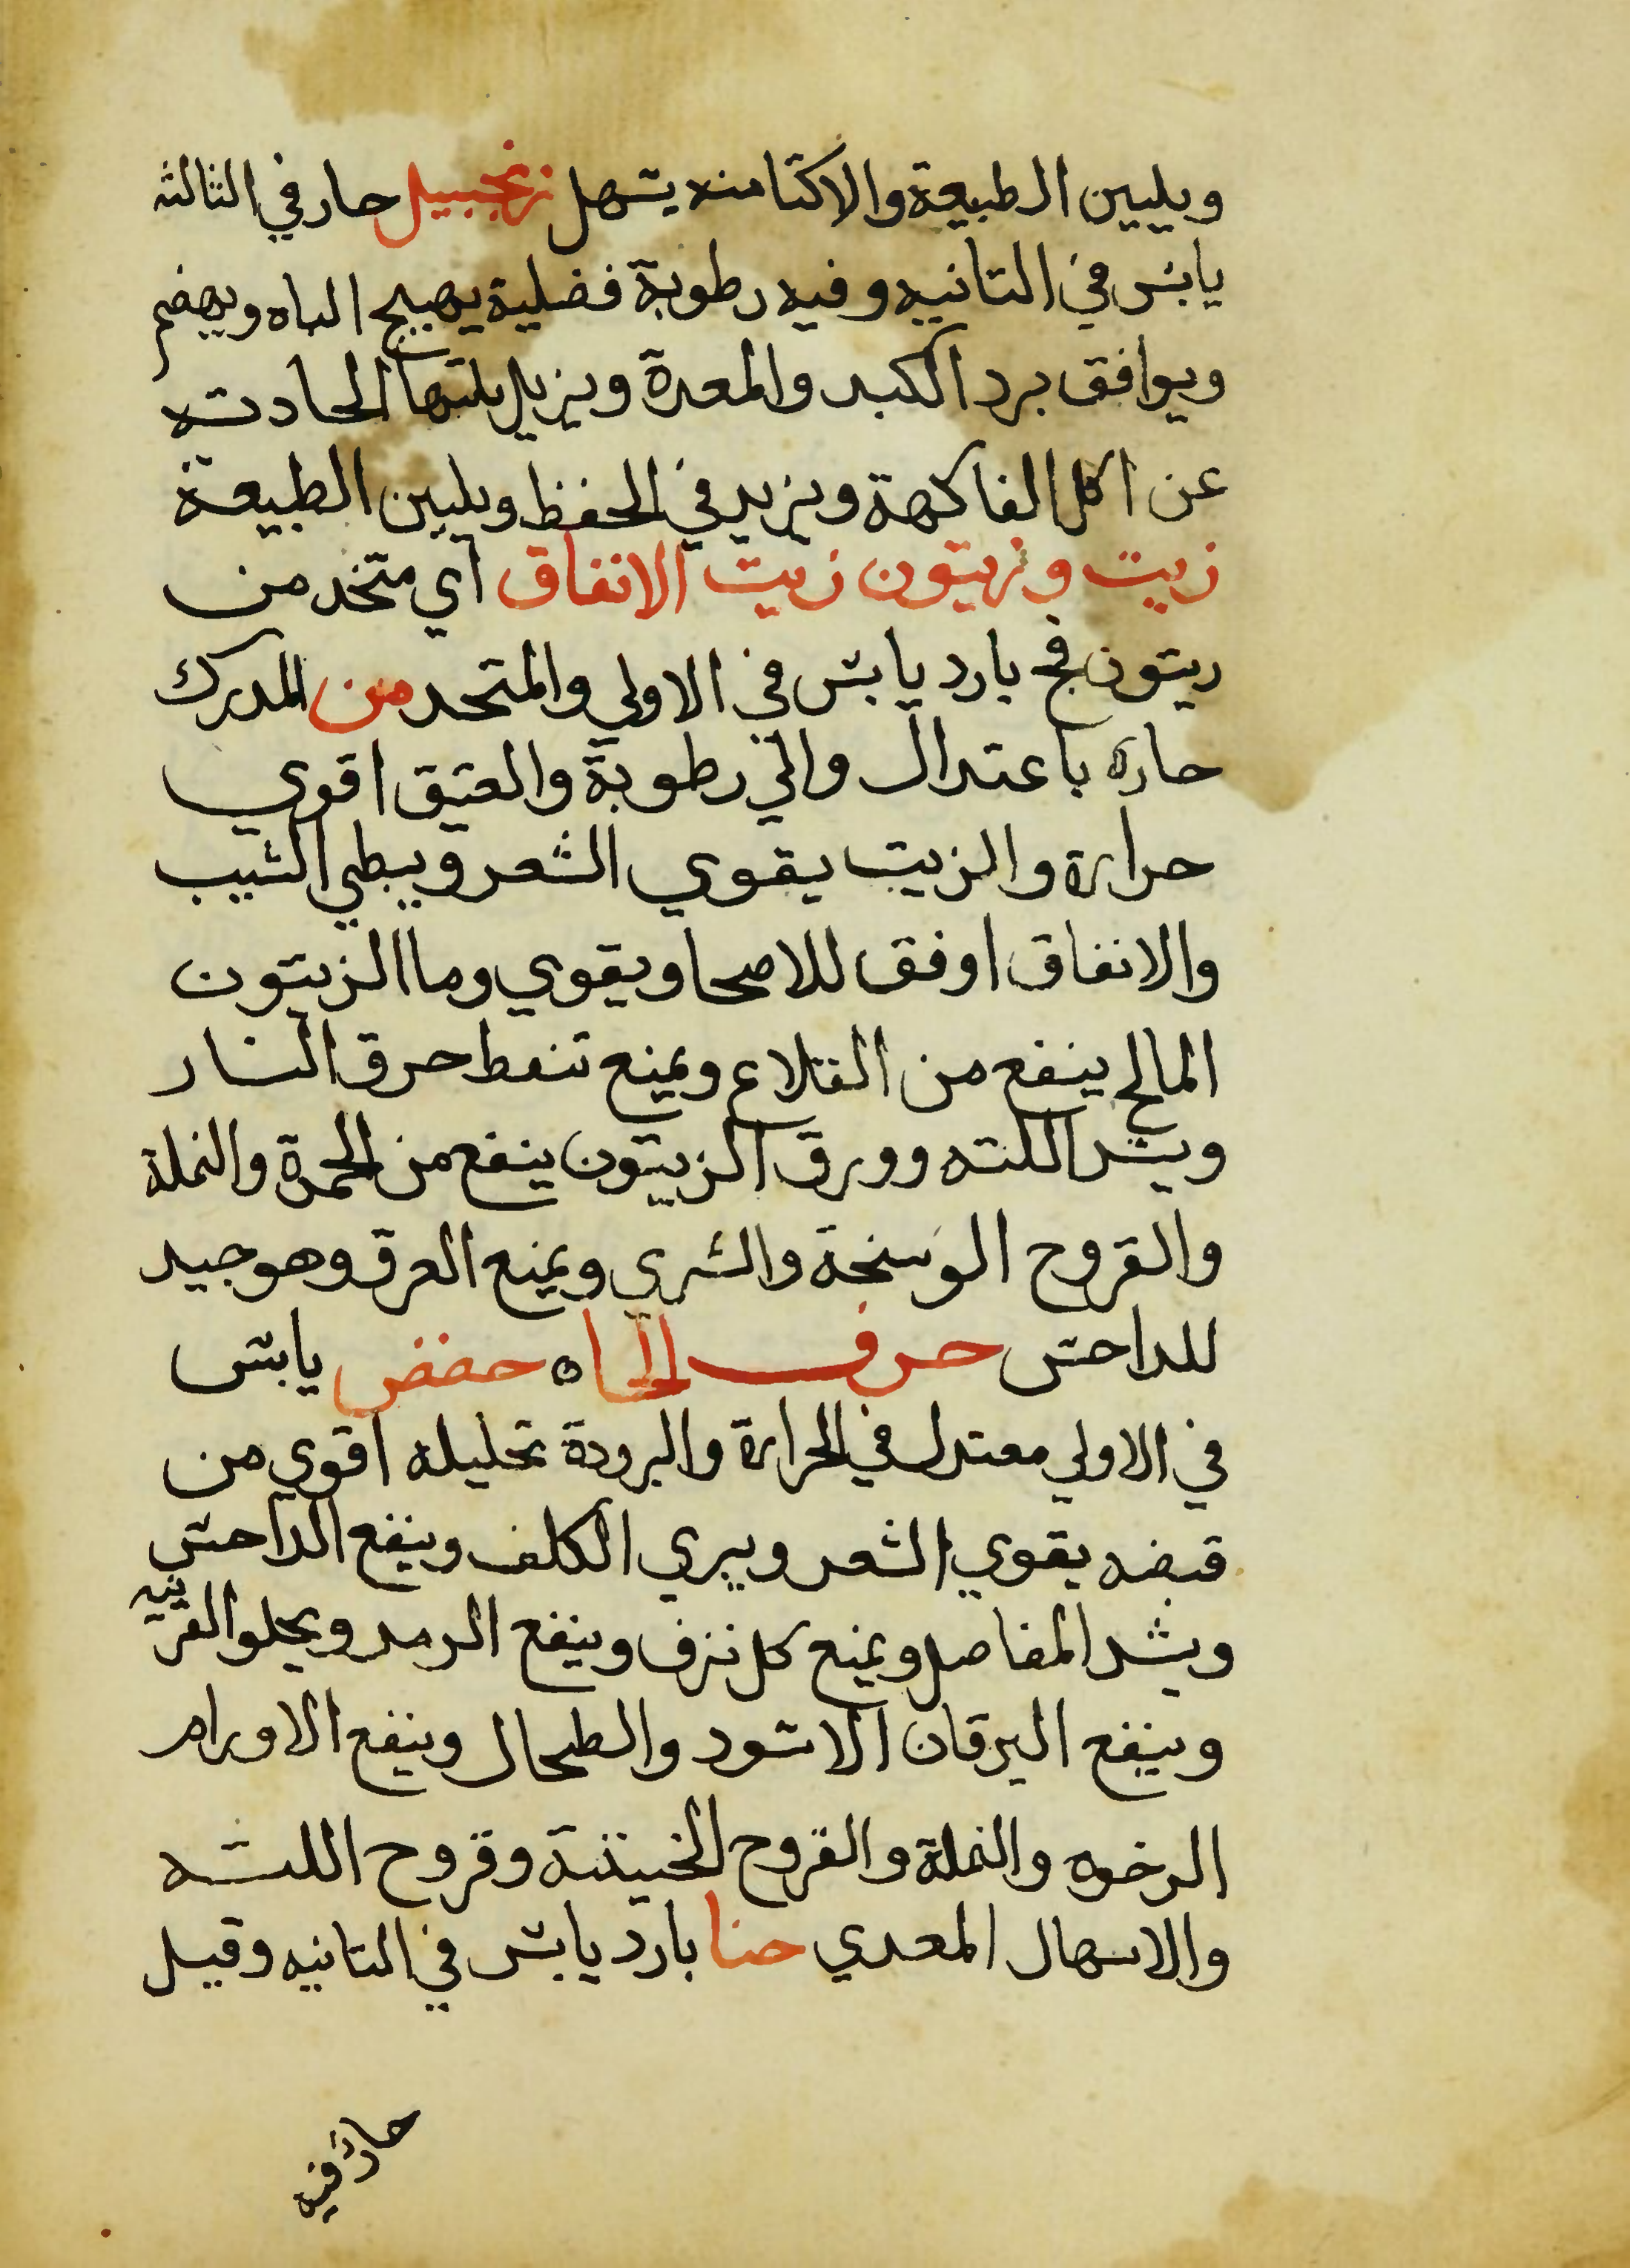 ويليين الطبيعة والاكتا منه يسهل زنجبيل حار في الثالثه
يابس في التانيه وفيه رطوبة فضلية يهيج الباه ويهضم
ويوافق برد الكبد والمعدة ويزيل بلتها الحادته
عن اكل الفاكهة ويزيد في الحفظ ويليين الطبيعة
زيت وزيتون زيت الانفاق اي متخد من
ريتون فج بارد يابس في الاولي والمتحد من المدرك
حاره باعتدال والي رطوبة والعتيق اقوي
حرارة والزيت يقوي الشعر ويبطي الشيب
والانفاق اوفق للاصحا ويقوي وما الزيتون
المالح ينفع من القلاع ويمنع تنفط حرق النار
ويشد اللته وورق الزيتون ينفع من الحمرة والنملة
والقروح الوسخة والشري ويمنع العرق وهو جيد
للداحس حرف الحاه حضض يابس
في الاولي معتدل في الحرارة والبرودة تحليله اقوي من
قبضه يقوي الشعر ويبري الكلف وينفع الداحس
ويشد المفاصل ويمنع كل نزف وينفع الرمد ويجلو القرنيه
وينفع اليرقان الاسود والطحال وينفع الاورام
الرخوه والنملة والقروح الخبيثة وقروح اللثه
والاسهال المعدي حنا بارد يابس في التانيه وقيل
حار فيه